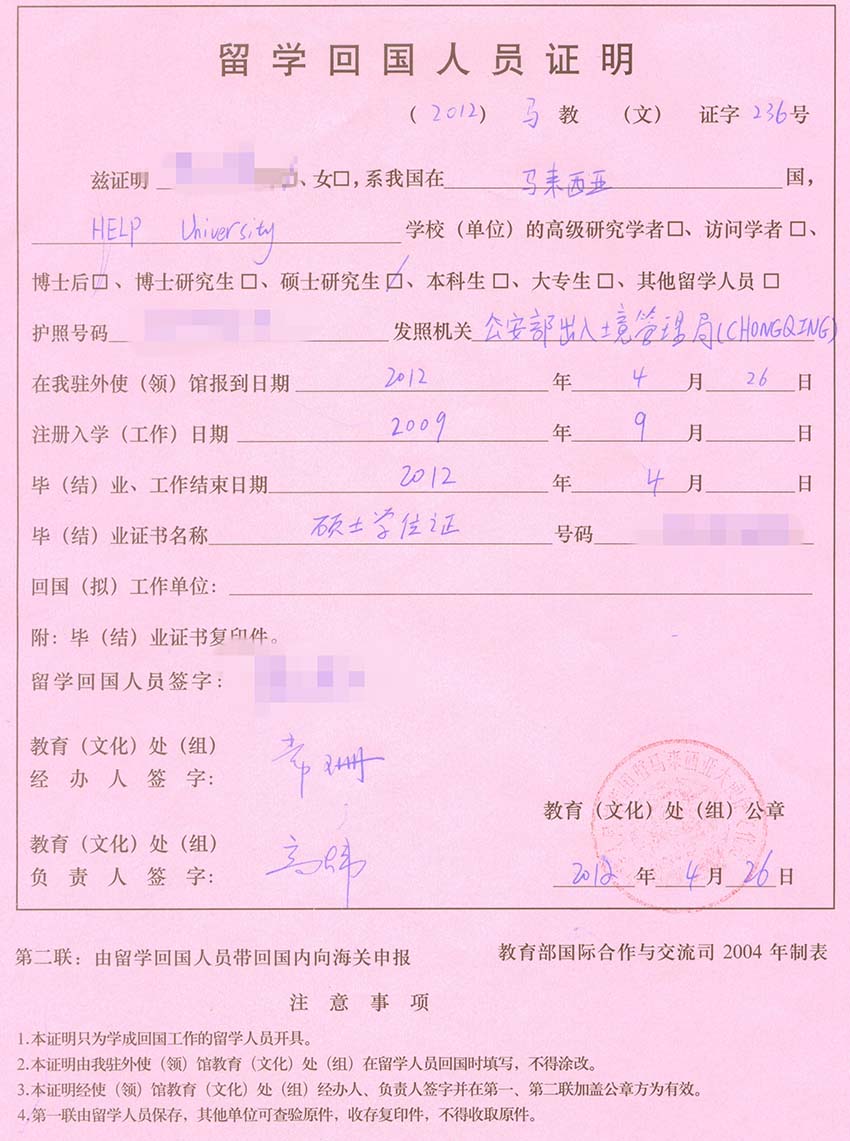 留学回国人员证明
（2012）马教（文）证字236号
兹证明、女□，系我国在马来西亚国，
HELP University学校（单位）的高级研究学者□、访问学者□、
博士后□、博士研究生□、硕士研究生☑、本科生□、大专生□、其他留学人员□
护照号码 发照机关 公安部出入境管理局(CHONGQING)
在我驻外使（领）馆报到日期 2012年4月26日
注册入学（工作）日期 2009年9月 日
毕（结）业、工作结束日期 2012年4月 日
毕（结）业证书名称 硕士学位证 号码
回国（拟）工作单位：
附：毕（结）业证书复印件。
留学回国人员签字：
教育（文化）处（组）
经办人签字：
教育（文化）处（组）公章
教育（文化）处（组）
负责人签字：
2012年4月26日
第二联：由留学回国人员带回国内向海关申报 教育部国际合作与交流司2004年制表
注意事项
1.本证明只为学成回国工作的留学人员开具。
2.本证明由我驻外使（领）馆教育（文化）处（组）在留学人员回国时填写，不得涂改。
3.本证明经使（领）馆教育（文化）处（组）经办人、负责人签字并在第一、第二联加盖公章方为有效。
4.第一联由留学人员保存，其他单位可查验原件，收存复印件，不得收取原件。